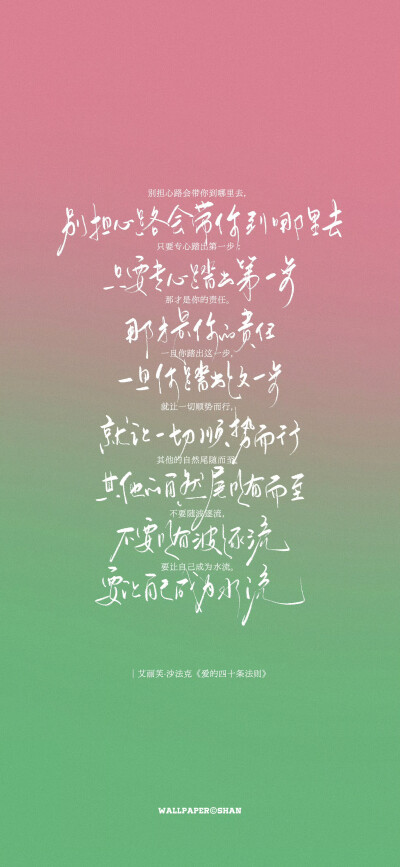 别担心路会带你到哪里去，
别担心路会带你到哪里去
只要专心踏出第一步，
只要专心踏出第一步
那才是你的责任。
那才是你的责任
一旦你踏出这一步，
一旦你踏出这一步
就让一切顺势而行，
就让一切顺势而行
其他的自然尾随而至。
其他的自然尾随而至
不要随波逐流，
不要随波逐流
要让自己成为水流。
要让自己成为水流
｜艾丽芙·沙法克《爱的四十条法则》
WALLPAPER©SHAN